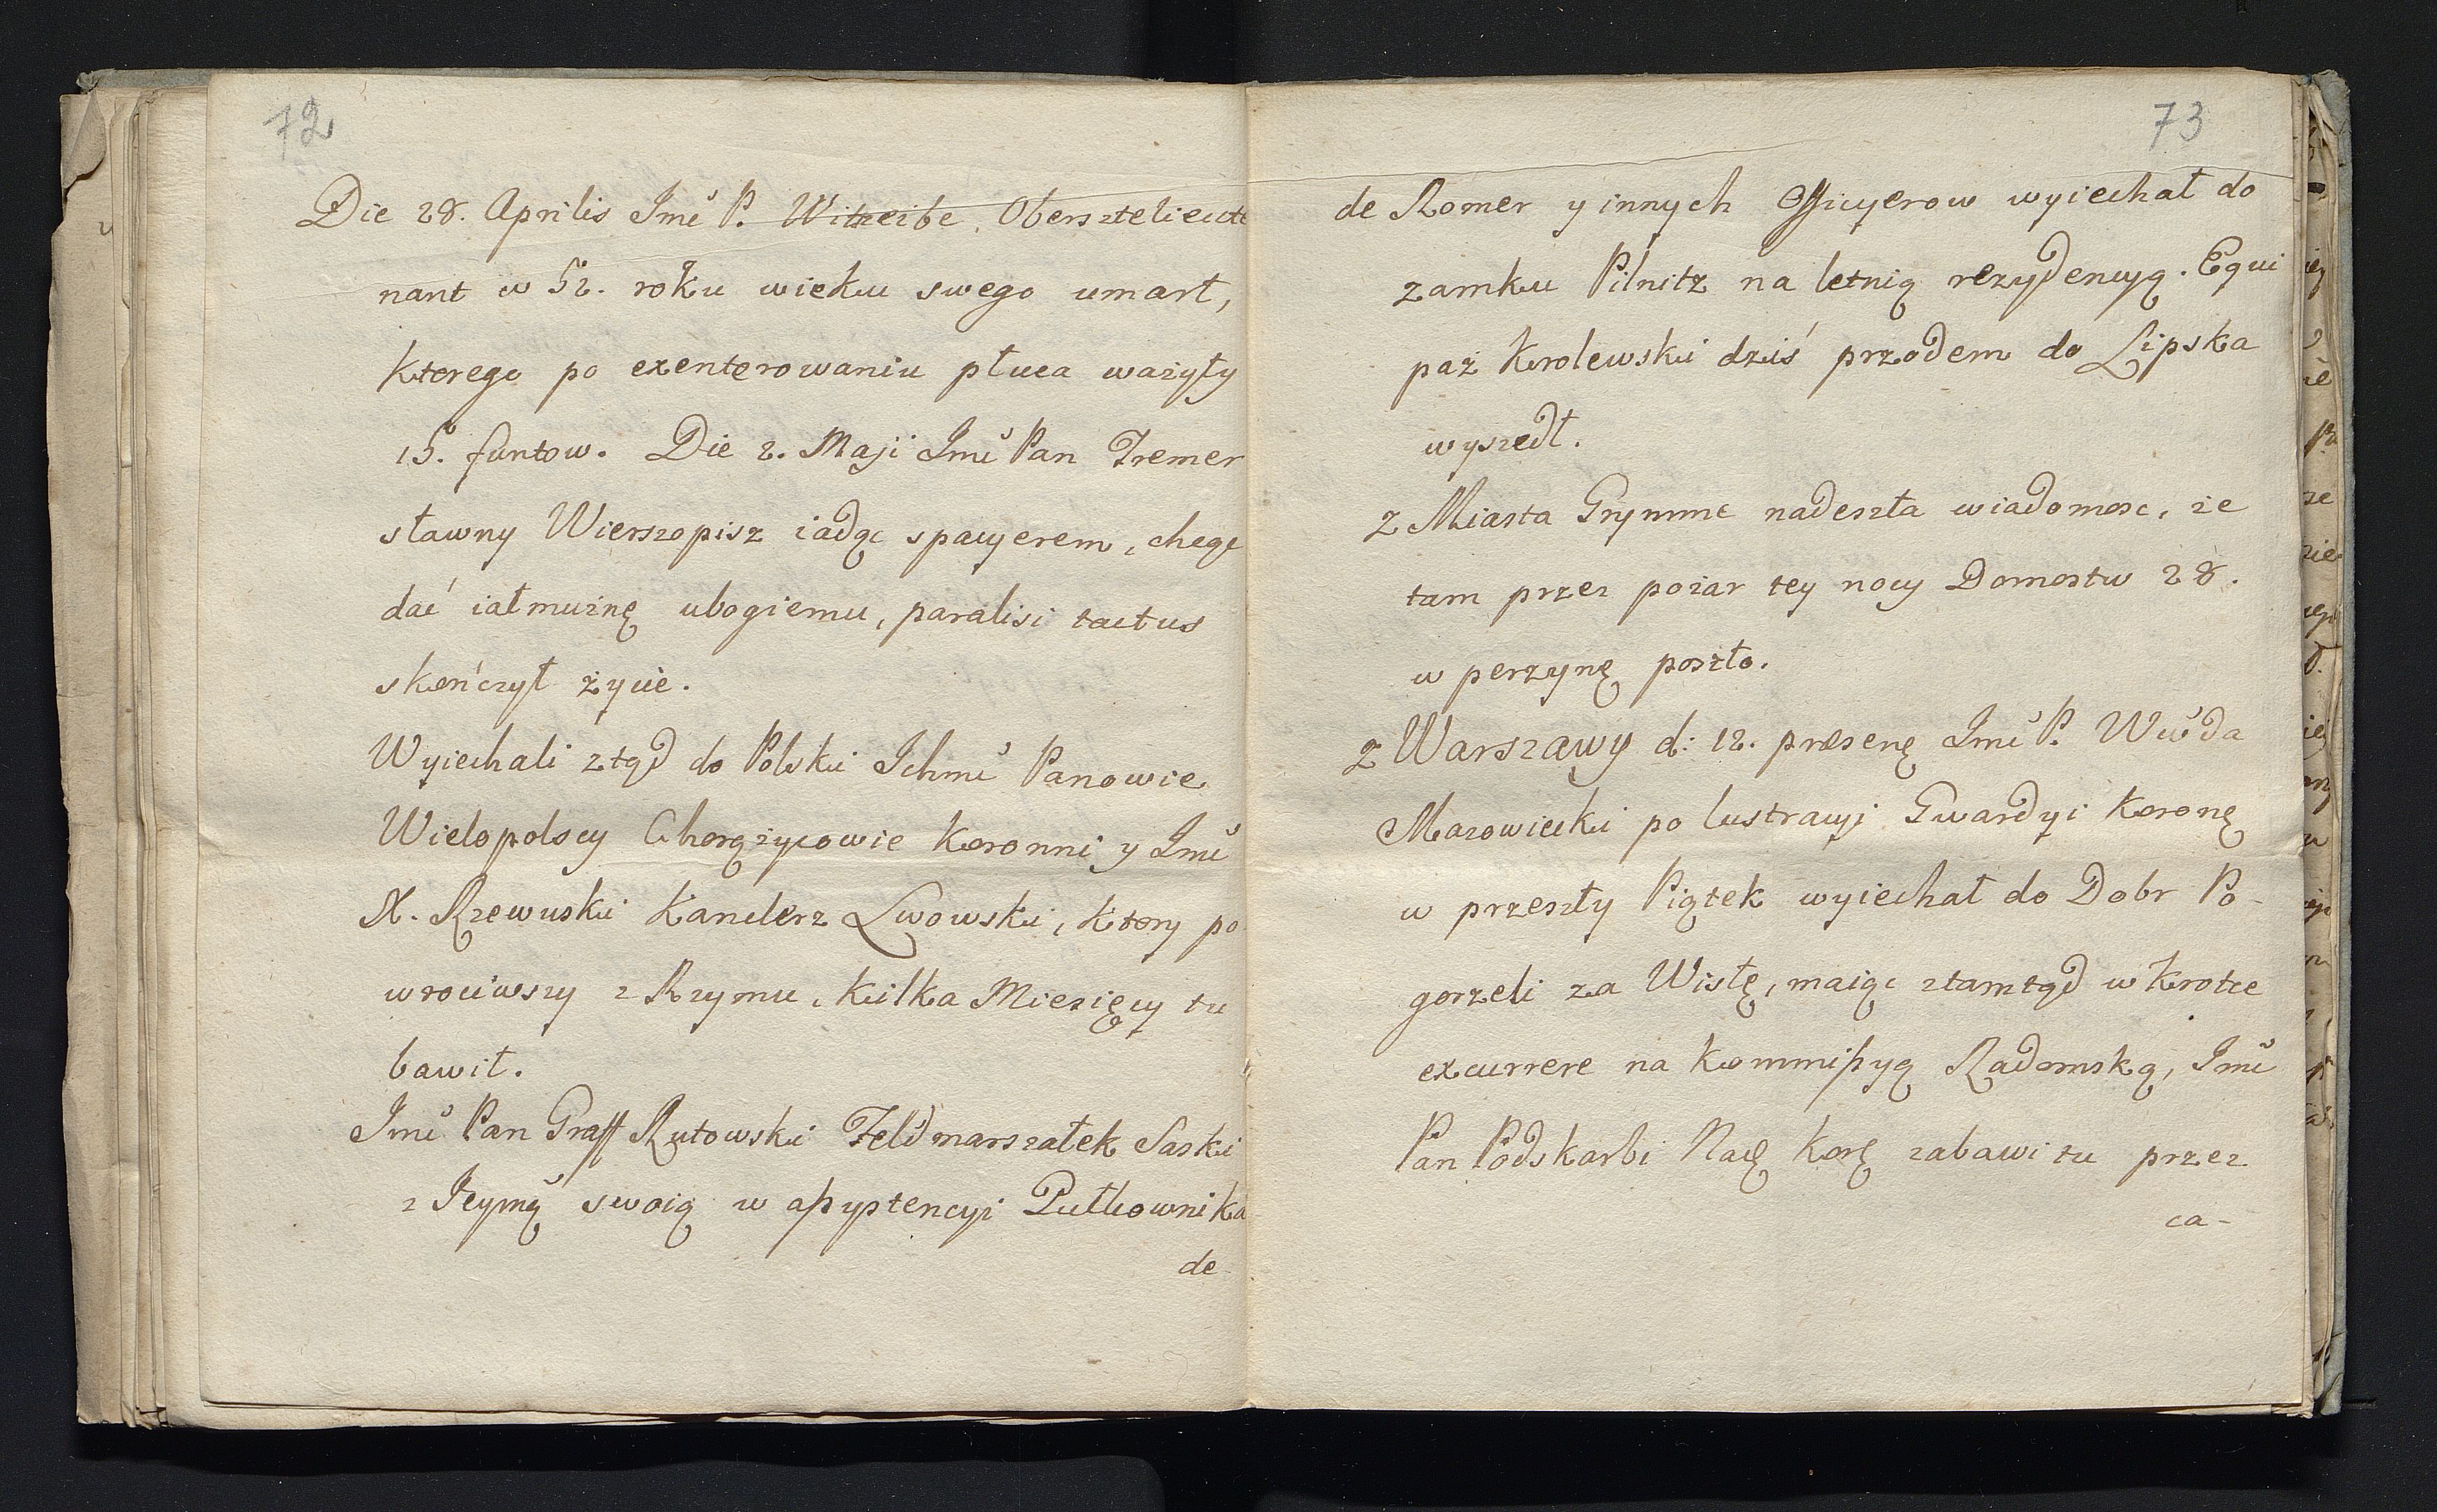 72
Die 28. Aprilis Jmć P. Witzeibe, Obersztelieute
nant w 52. roku wieku swego umarł,
ktorego po exenterowaniu płuca ważyły
15. funtow. Die 2. Maji Jmć Pan Tremer
sławny Wierszopisz iadąc spacyerem, chcąc
dać iałmużnę ubogiemu, paralisi tactus
skończył życie.
Wyiechali ztąd do Polski Ichmć Panowie
Wielopolscy Chorążycowie Koronni y Jmć
X. Rzewuski Kanclerz Lwowski, ktory po
wrociwszy z Rzymu, kilka Miesięcy tu
bawił.
Jmć Pan Graff Rutowski Feldmarszałek Saski
z Jeymą swoią w assystencyi Pułkownika
de
73
de Romer y innych Officyerow wyiechał do
zamku Pilnitz na letnią rezydencyą. Equi
paż Krolewski dziś przodem do Lipska
wyszedł.
z Miasta Grymme nadeszła wiadomosc, że
tam przez pożar tey nocy Domostw 28.
w perzynę poszło.
z Warszawy d: 12. præsenę Jmć P. Wwda
Mazowiecki po lustracyi Gwardyi Koronę
w przeszły Piątek wyiechał do Dobr Po-
gorzeli za Wisłę, maiąc ztamtąd wkrotce
excurrere na Kommissyą Radomską, Jmć
Pan Podskarbi Nadę Korę zabawi tu przez
ca-